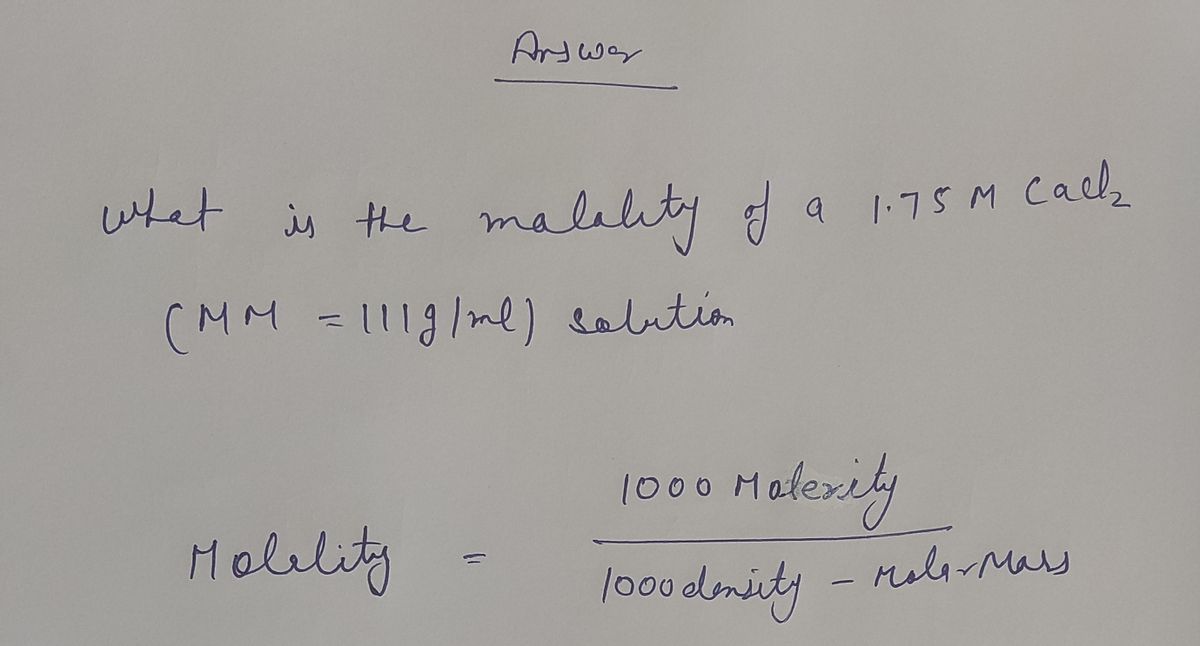 Answer
What is the malality of a 1.75 M CaCl2
(MM = 111g/ml) solution
Molality = 1000 Molerity
1000 density - Molar Mass